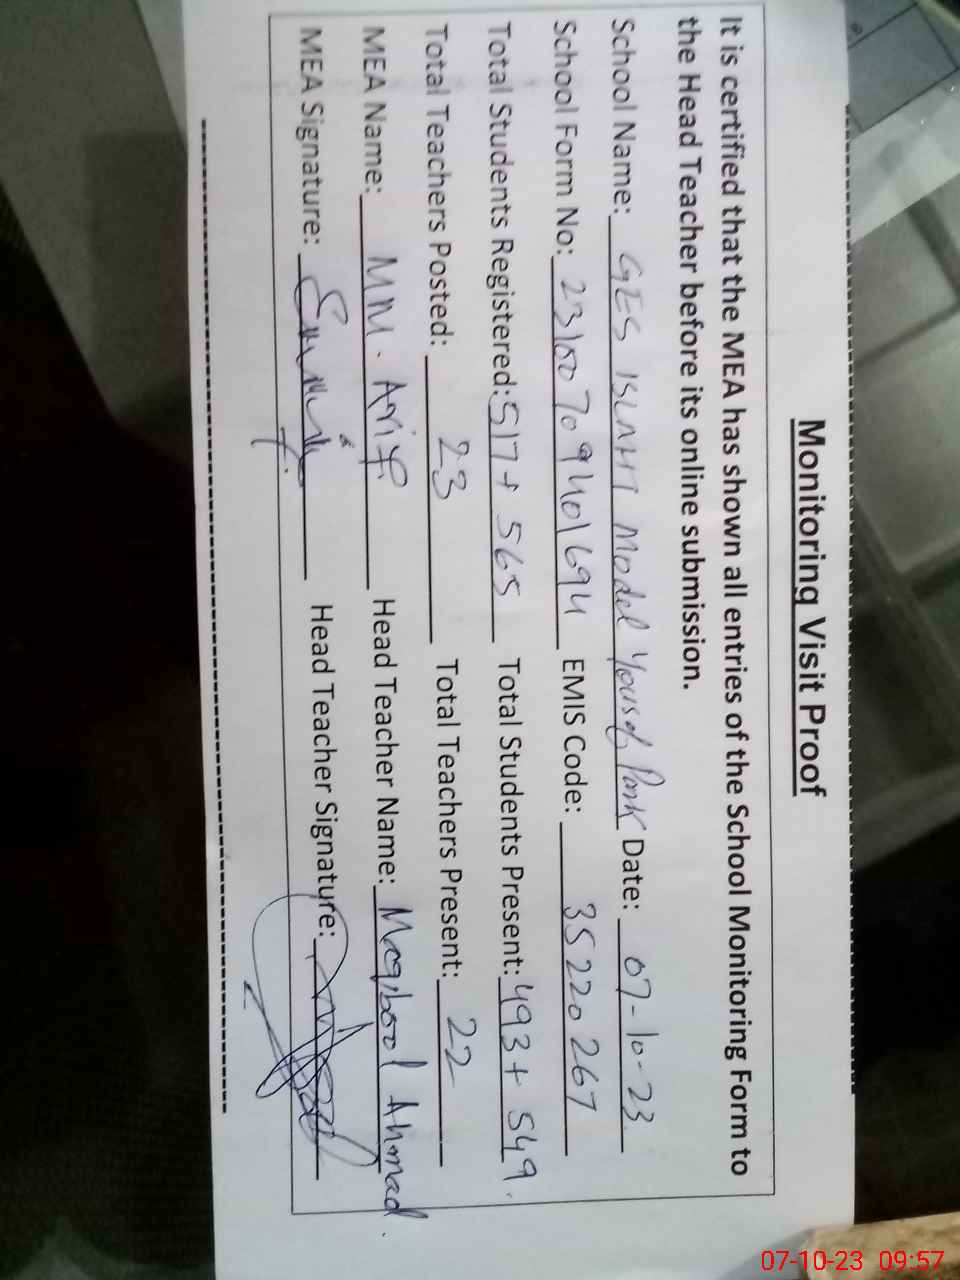 Monitoring Visit Proof
It is certified that the MEA has shown all entries of the School Monitoring Form to
the Head Teacher before its online submission.
School Name: GES ISLAHI Model Yousaf Park Date: 07-10-23
School Form No: 23100709401694 EMIS Code: 35220267
Total Students Registered: 517 + 565 Total Students Present: 493 + 549.
Total Teachers Posted: 23 Total Teachers Present: 22
MEA Name: MM. Arif Head Teacher Name: Maqbool Ahmad.
MEA Signature: Head Teacher Signature:
07-10-23 09:57